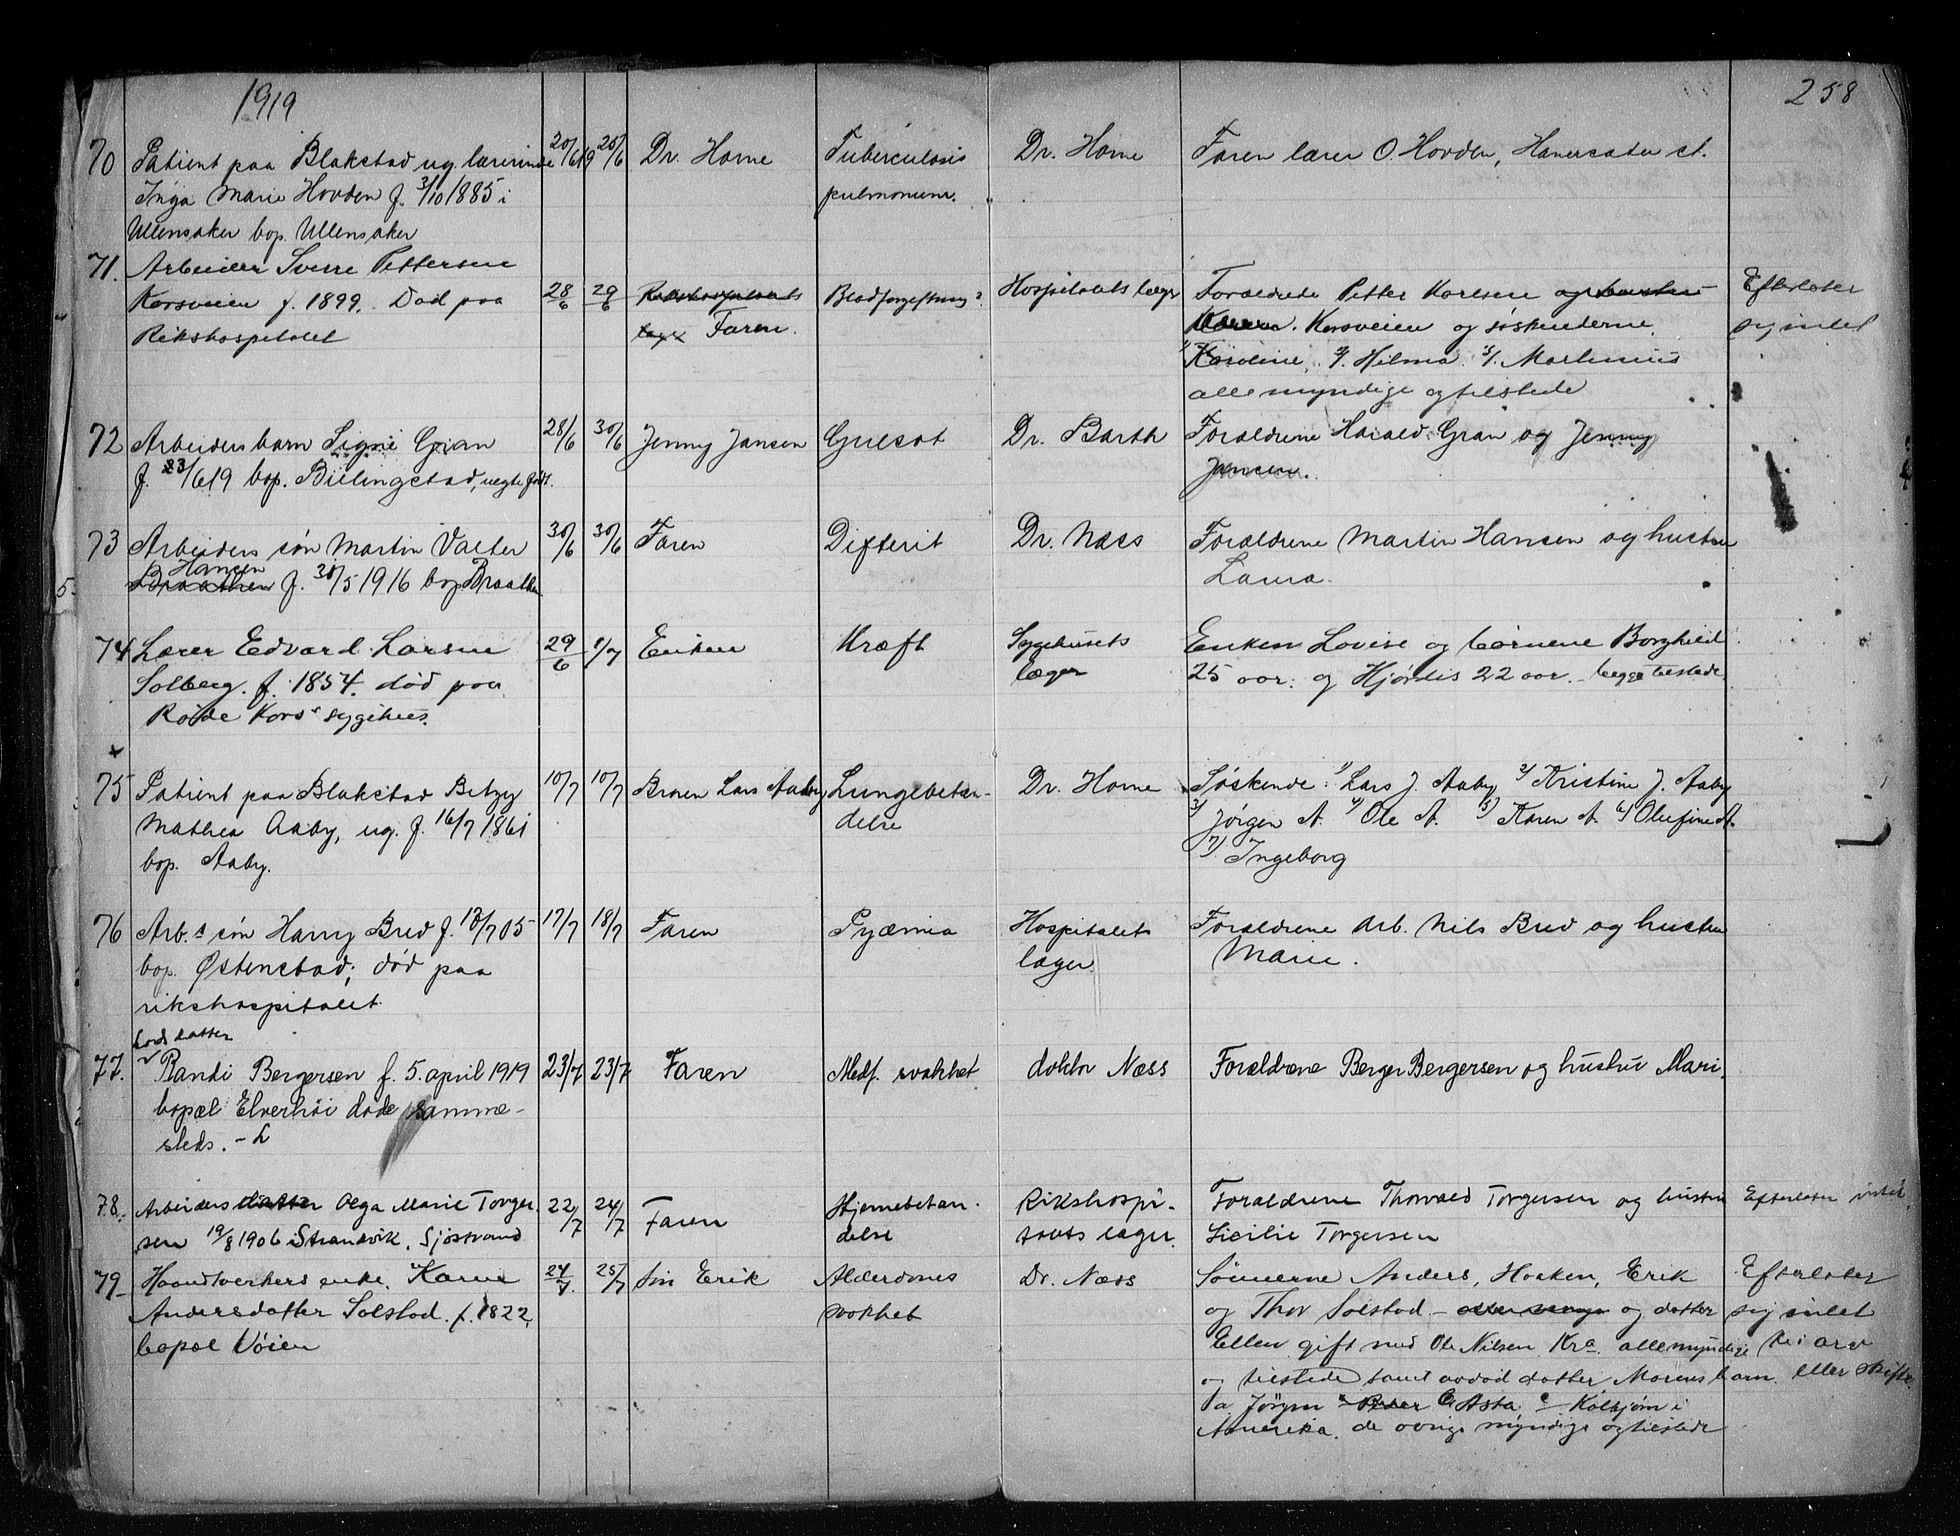 1919
258
70 Patient paa Blakstad ug. lærerinde 20/6 19 20/6 Dr. Horne Tuberculosis Dr. Horne Faren lærer O. Hovden, Hanersater st.
Inga Marie Hovden f. 3/10 1885 i pulmonum.
Ullensaker bop. Ullensaker
71. Arbeider Sverre Pettersen
Korsveien f. 1899. Död paa 28/6 29/6 Rikshospitalets Blodforgiftning? Hospitalets læger Forældrene Petter Karlsen og hustru Efterlater
Rikshospitalet læge Faren. Karen. Korsveien og søskenderne sig intet
1/ Karoline, 2/. Hilma 3/. Martinius
alle myndige og tilstede
72 Arbeiders barn Signe Gran 28/6 30/6 Jenny Jansen Gulsot Dr. Barth Forældrene Harald Gran og Jenny
f. 23/6 19 bop. Billingstad, uegte født. Jansen.
73 Arbeiders søn Martin Valter 30/6 30/6 Faren Difterit Dr. Næss Forældrene Martin Hansen og hustru
Hansen
Braathen f. 30/5 1916 bop Braathen Laura.
74 Lærer Edvard Larsen 29/6 1/7 Enken Kræft Sygehusets Enken Lovise og børnene Borghild
Solberg. f. 1854. död paa læger 25 aar. og Hjørdis 22 aar. - begge tilstede
Røde Kors sygehus.
75 Patient paa Blakstad Betzy 10/7 10/7 Broren Lars Aaby Lungebetæn- Dr. Horne Søskende: 1/ Lars J. Aaby, 2/ Kristine J. Aaby
Mathea Aaby, ug. f. 16/7 1861 delse 3/ Jørgen A. 4/ Ole A. 5/ Karen A. 6/ Olufine A.
bop. Aaby. 7/ Ingeborg
76 Arb.s søn Harry Bred f. 12/7 05 17/7 18/7 Faren Pyæmia Hospitalets Forældrene Arb. Nils Bred og hustru
bop. Østenstad; död paa læger Marie.
rikshospitalet.
datter
77. Randi Bergersen f. 5. april 1919 23/7 23/7 Faren Medf. svakhet doktor Næss Forældrene Berger Bergersen og hustru Mari.
bopæl Elverhöi döde samme-
steds. - L
78. Arbeiders datter Olga Marie Torger- 22/7 24/7 Faren Hjernebetæn- Rikshospi- Forældrene Thorvald Torgersen og hustru Efterlater intet
sen 19/8 1906 i Strandvik. Sjöstrand delse talets læger. Sicilie Torgersen
79 Haandverkers enke. Karen 24/7. 25/7 Søn Erik Alderdoms Dr. Næss Sønnerne Anders, Haaken, Erik Efterlater
Andersdatter Solstad. f. 1822, svakhet og Thor Solstad - og datter sig intet
bopæl Vöien Ellen gift med Ole Nilsen Kra. alle myndige til arv
og tilstede samt avdöd datter Marens barn. eller skifte.
Jörgen Asta Kolbjørn i
Amerika. de övrige myndige og tilstede